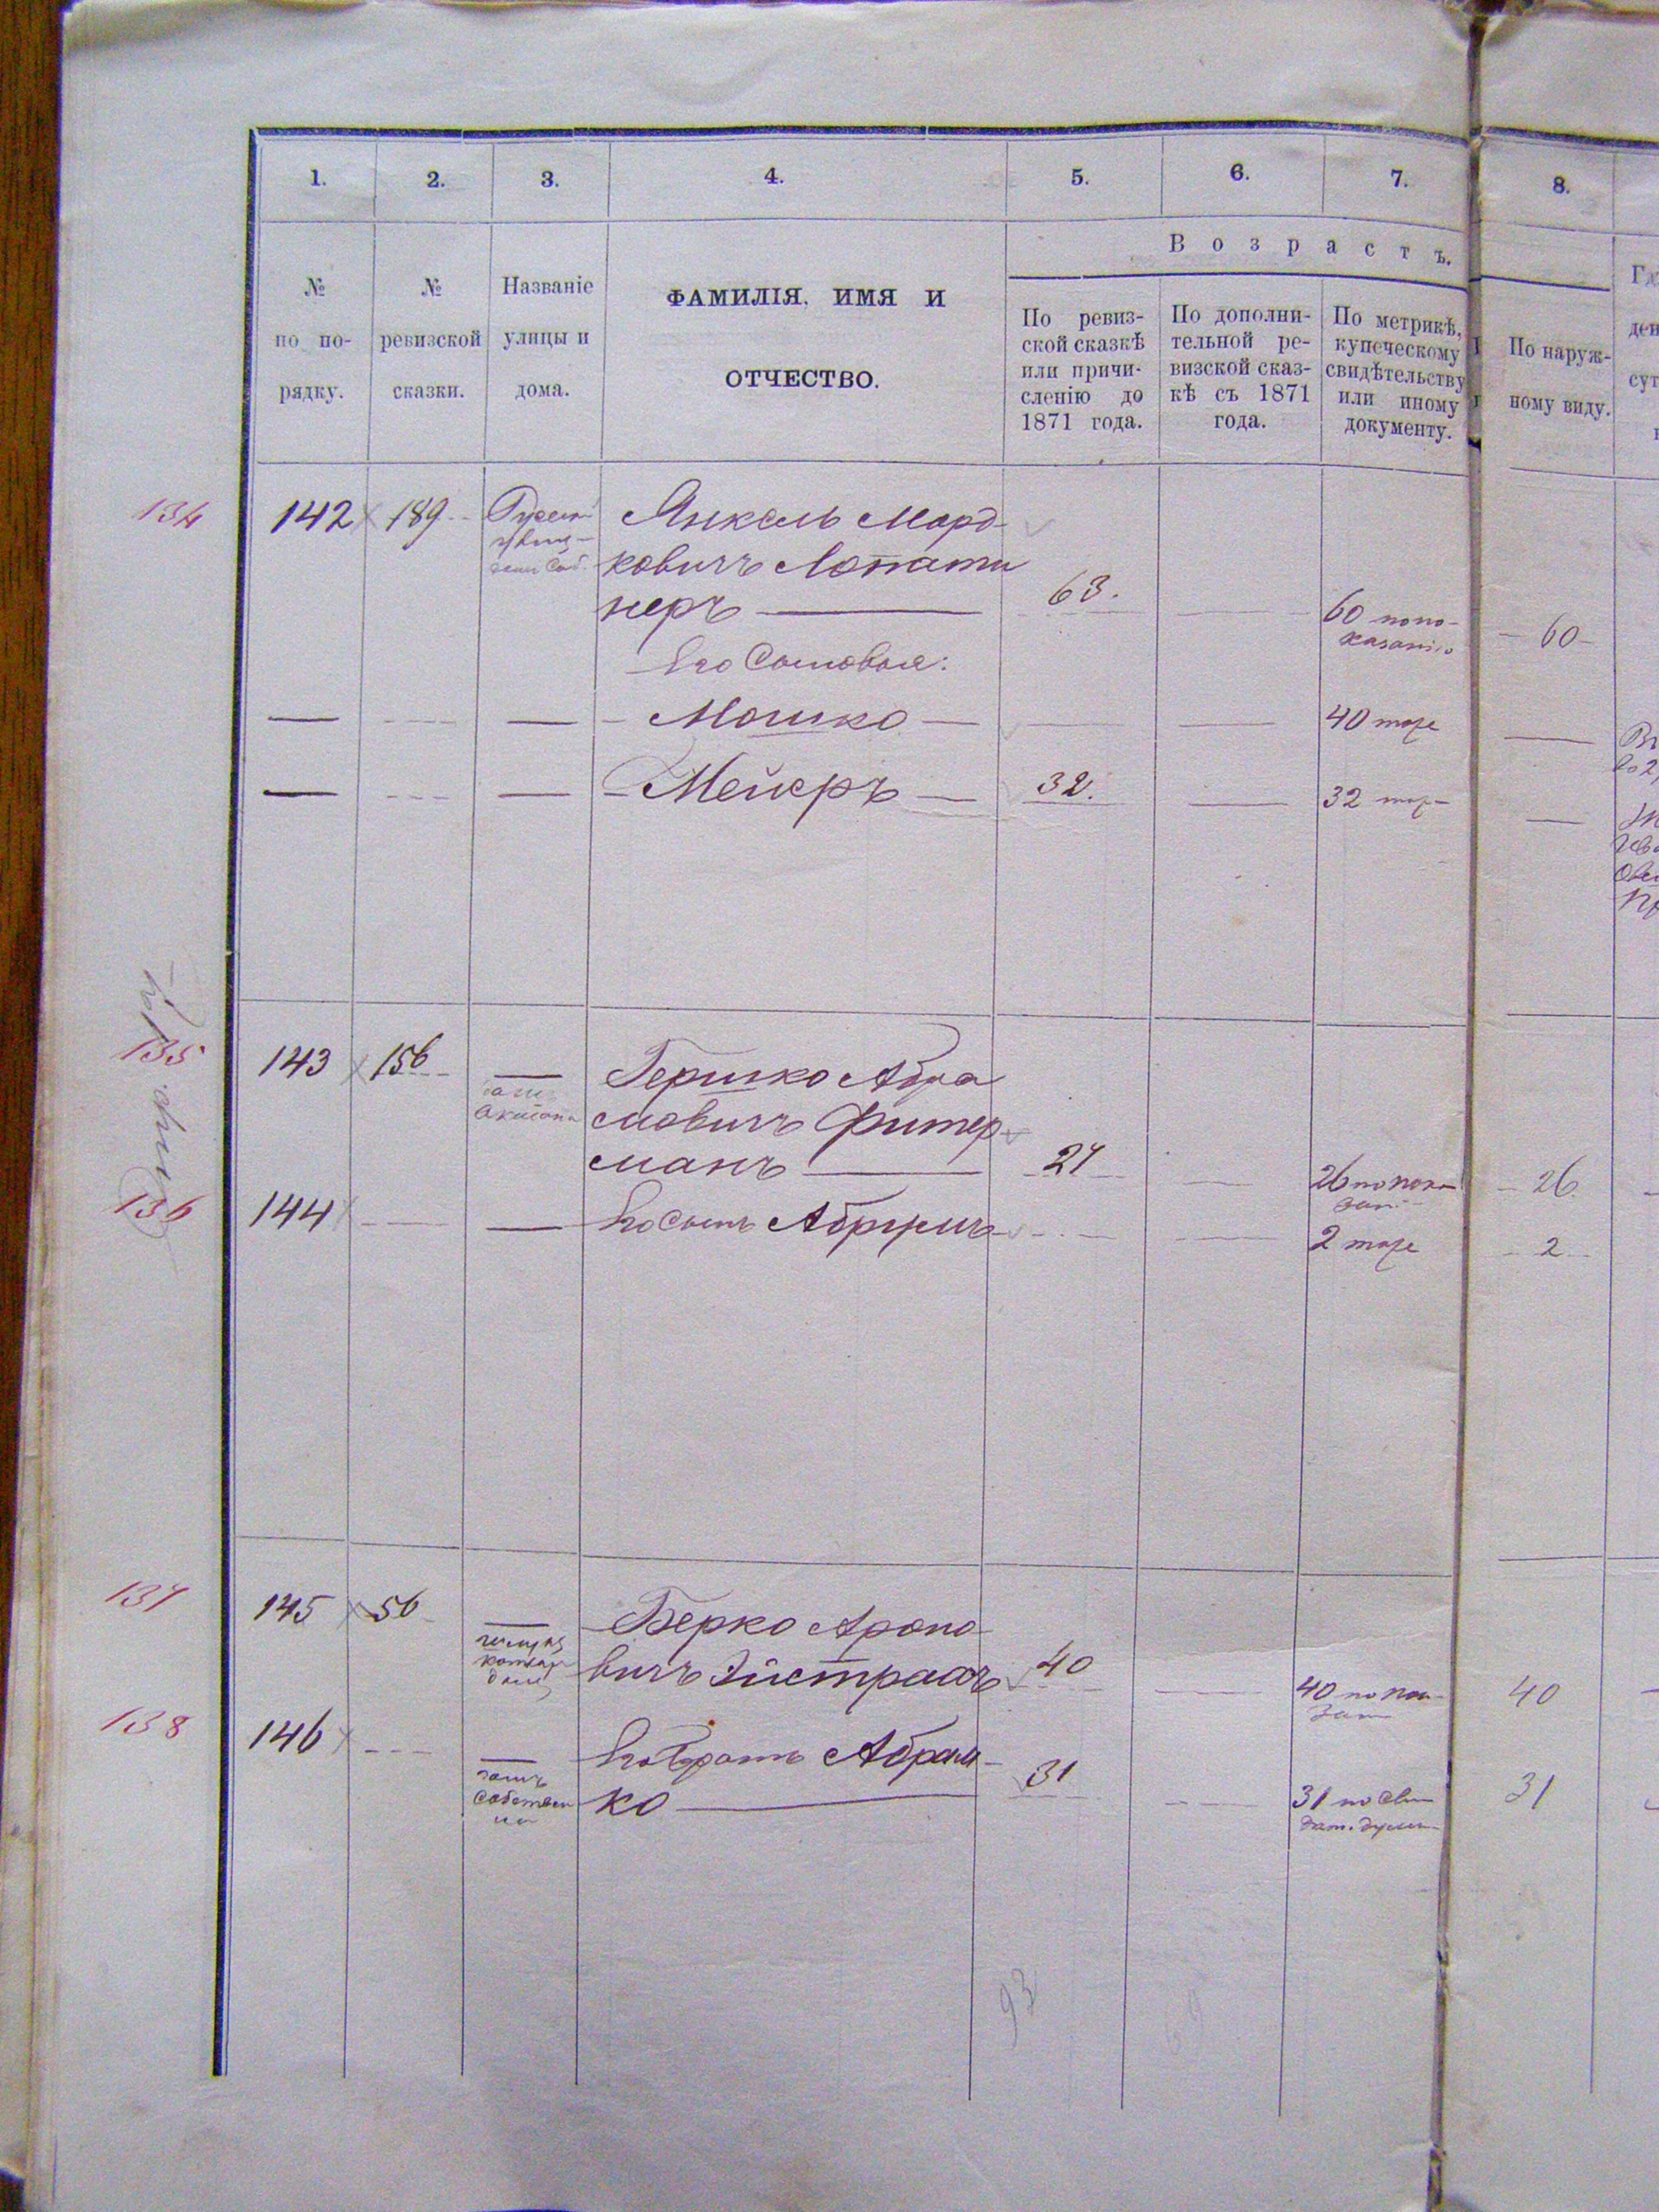 1. 2. 3. 4. 5. 6. 7. 8.
№ по по-рядку.
№ ревизской сказки.
Названіе улицы и дома.
ФАМИЛІЯ, ИМЯ И
ОТЧЕСТВО.
Возрастъ.
По ревиз-
ской сказкѣ
или причи-
сленію до
1871 года.
По дополни-
тельной ре-
визской сказ-
кѣ съ 1871
года.
По метрикѣ,
купеческому
свидѣтельству
или иному
документу.
По наруж-
ному виду.
134 142 189 Янкель Морд-
ковичъ Лопати
неръ 63. 60 по по-
казанію 60
Его Сыновья:
Мошко 40 тоже
Мейеръ 32. 32
135 143 156 Гершко Абра
мовичъ Фитер-
манъ 27 26 по пока
зан. 26
136 144 Его сынъ Абрумъ 2 тоже 2
137 145 56 Берко Ароно-
вичъ Эйстрахъ 40 40 40
138 146 Его братъ Абрам-
ко 31 31 31
93